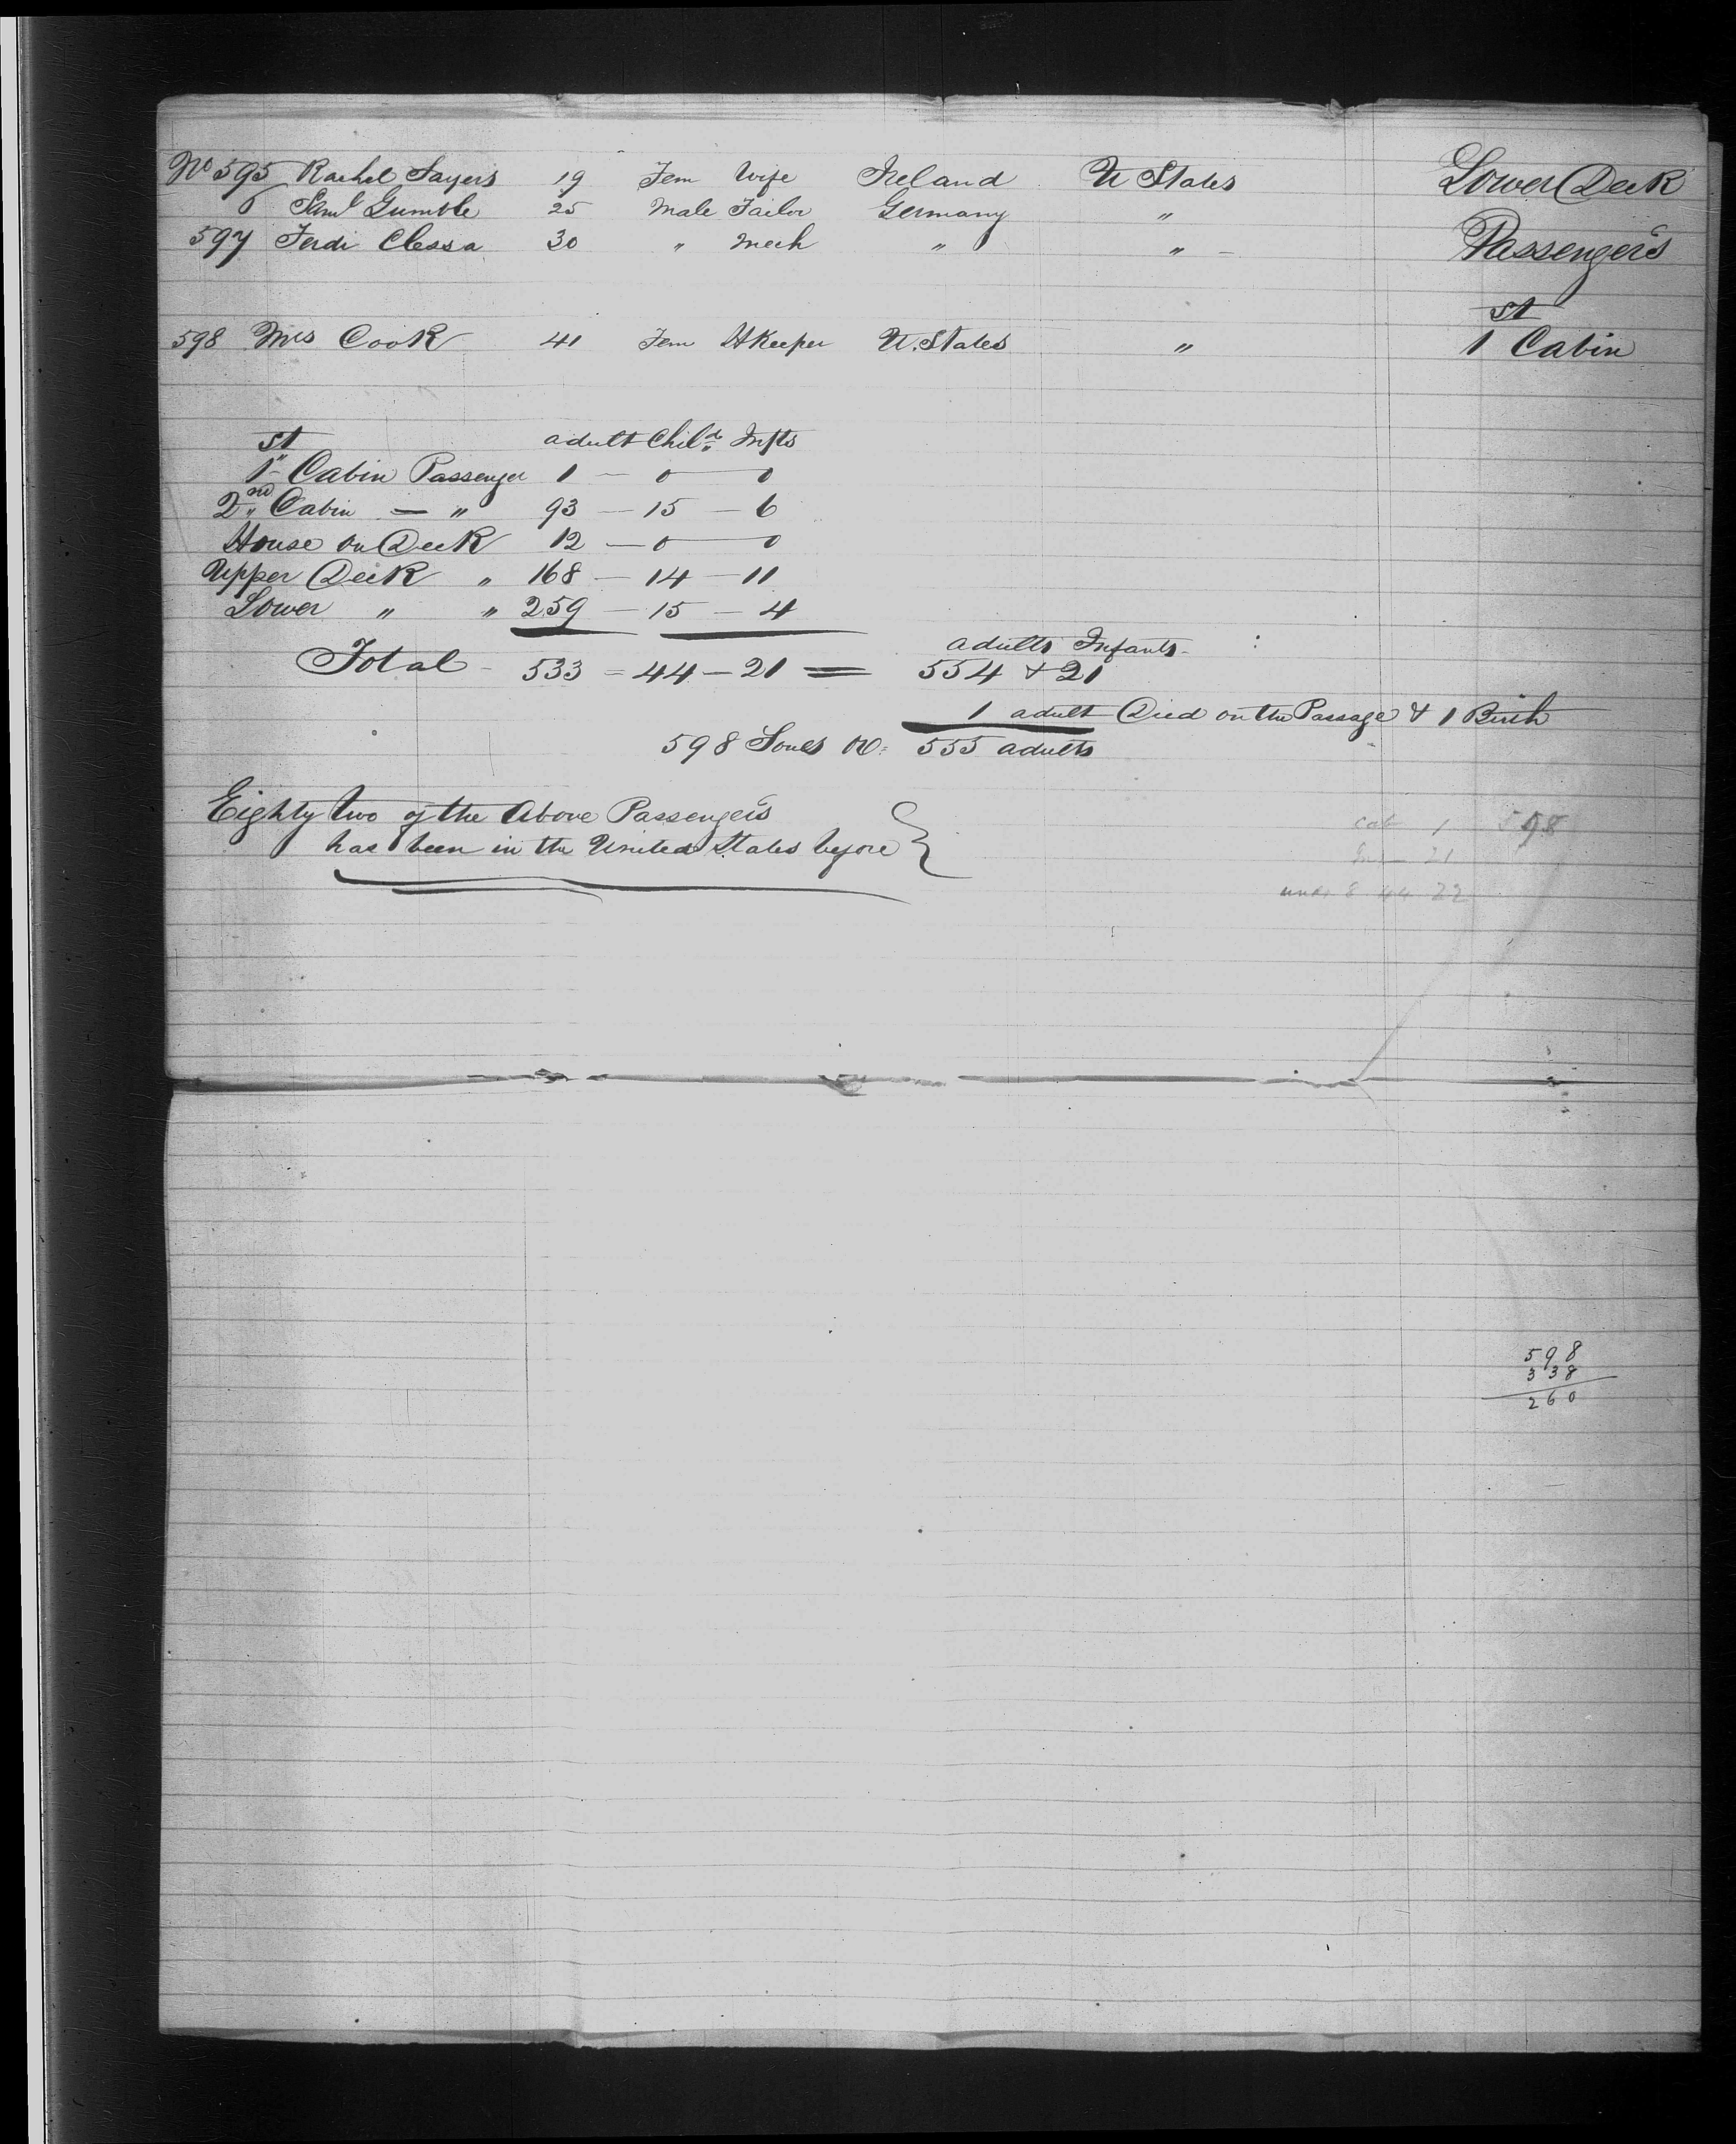 No 595 Rachel Sayers 19 Fem Wife Ireland U States Lower Deck
6 Saml Gumble 25 Male Tailor Germany "
597 Ferdi Clessa 30 " Mech " " Passengers
598 Mrs Cook 41 Fem HKeeper U. States " 1st Cabin
adult Child Infts
1st Cabin Passenger 1 — 0 — 0
2nd Cabin — " 93 — 15 — 6
House on Deck 12 — 0 — 0
Upper Deck " 168 — 14 — 11
Lower " " 259 — 15 — 4
adults Infants
Total - 533 = 44 — 21 = 554 & 21
1 adult Died on the Passage & 1 Birth
598 Soules or 555 adults
Eighty two of the Above Passengers
has been in the United States before
cab 1 598
21
under 8 44 22
598
338
260